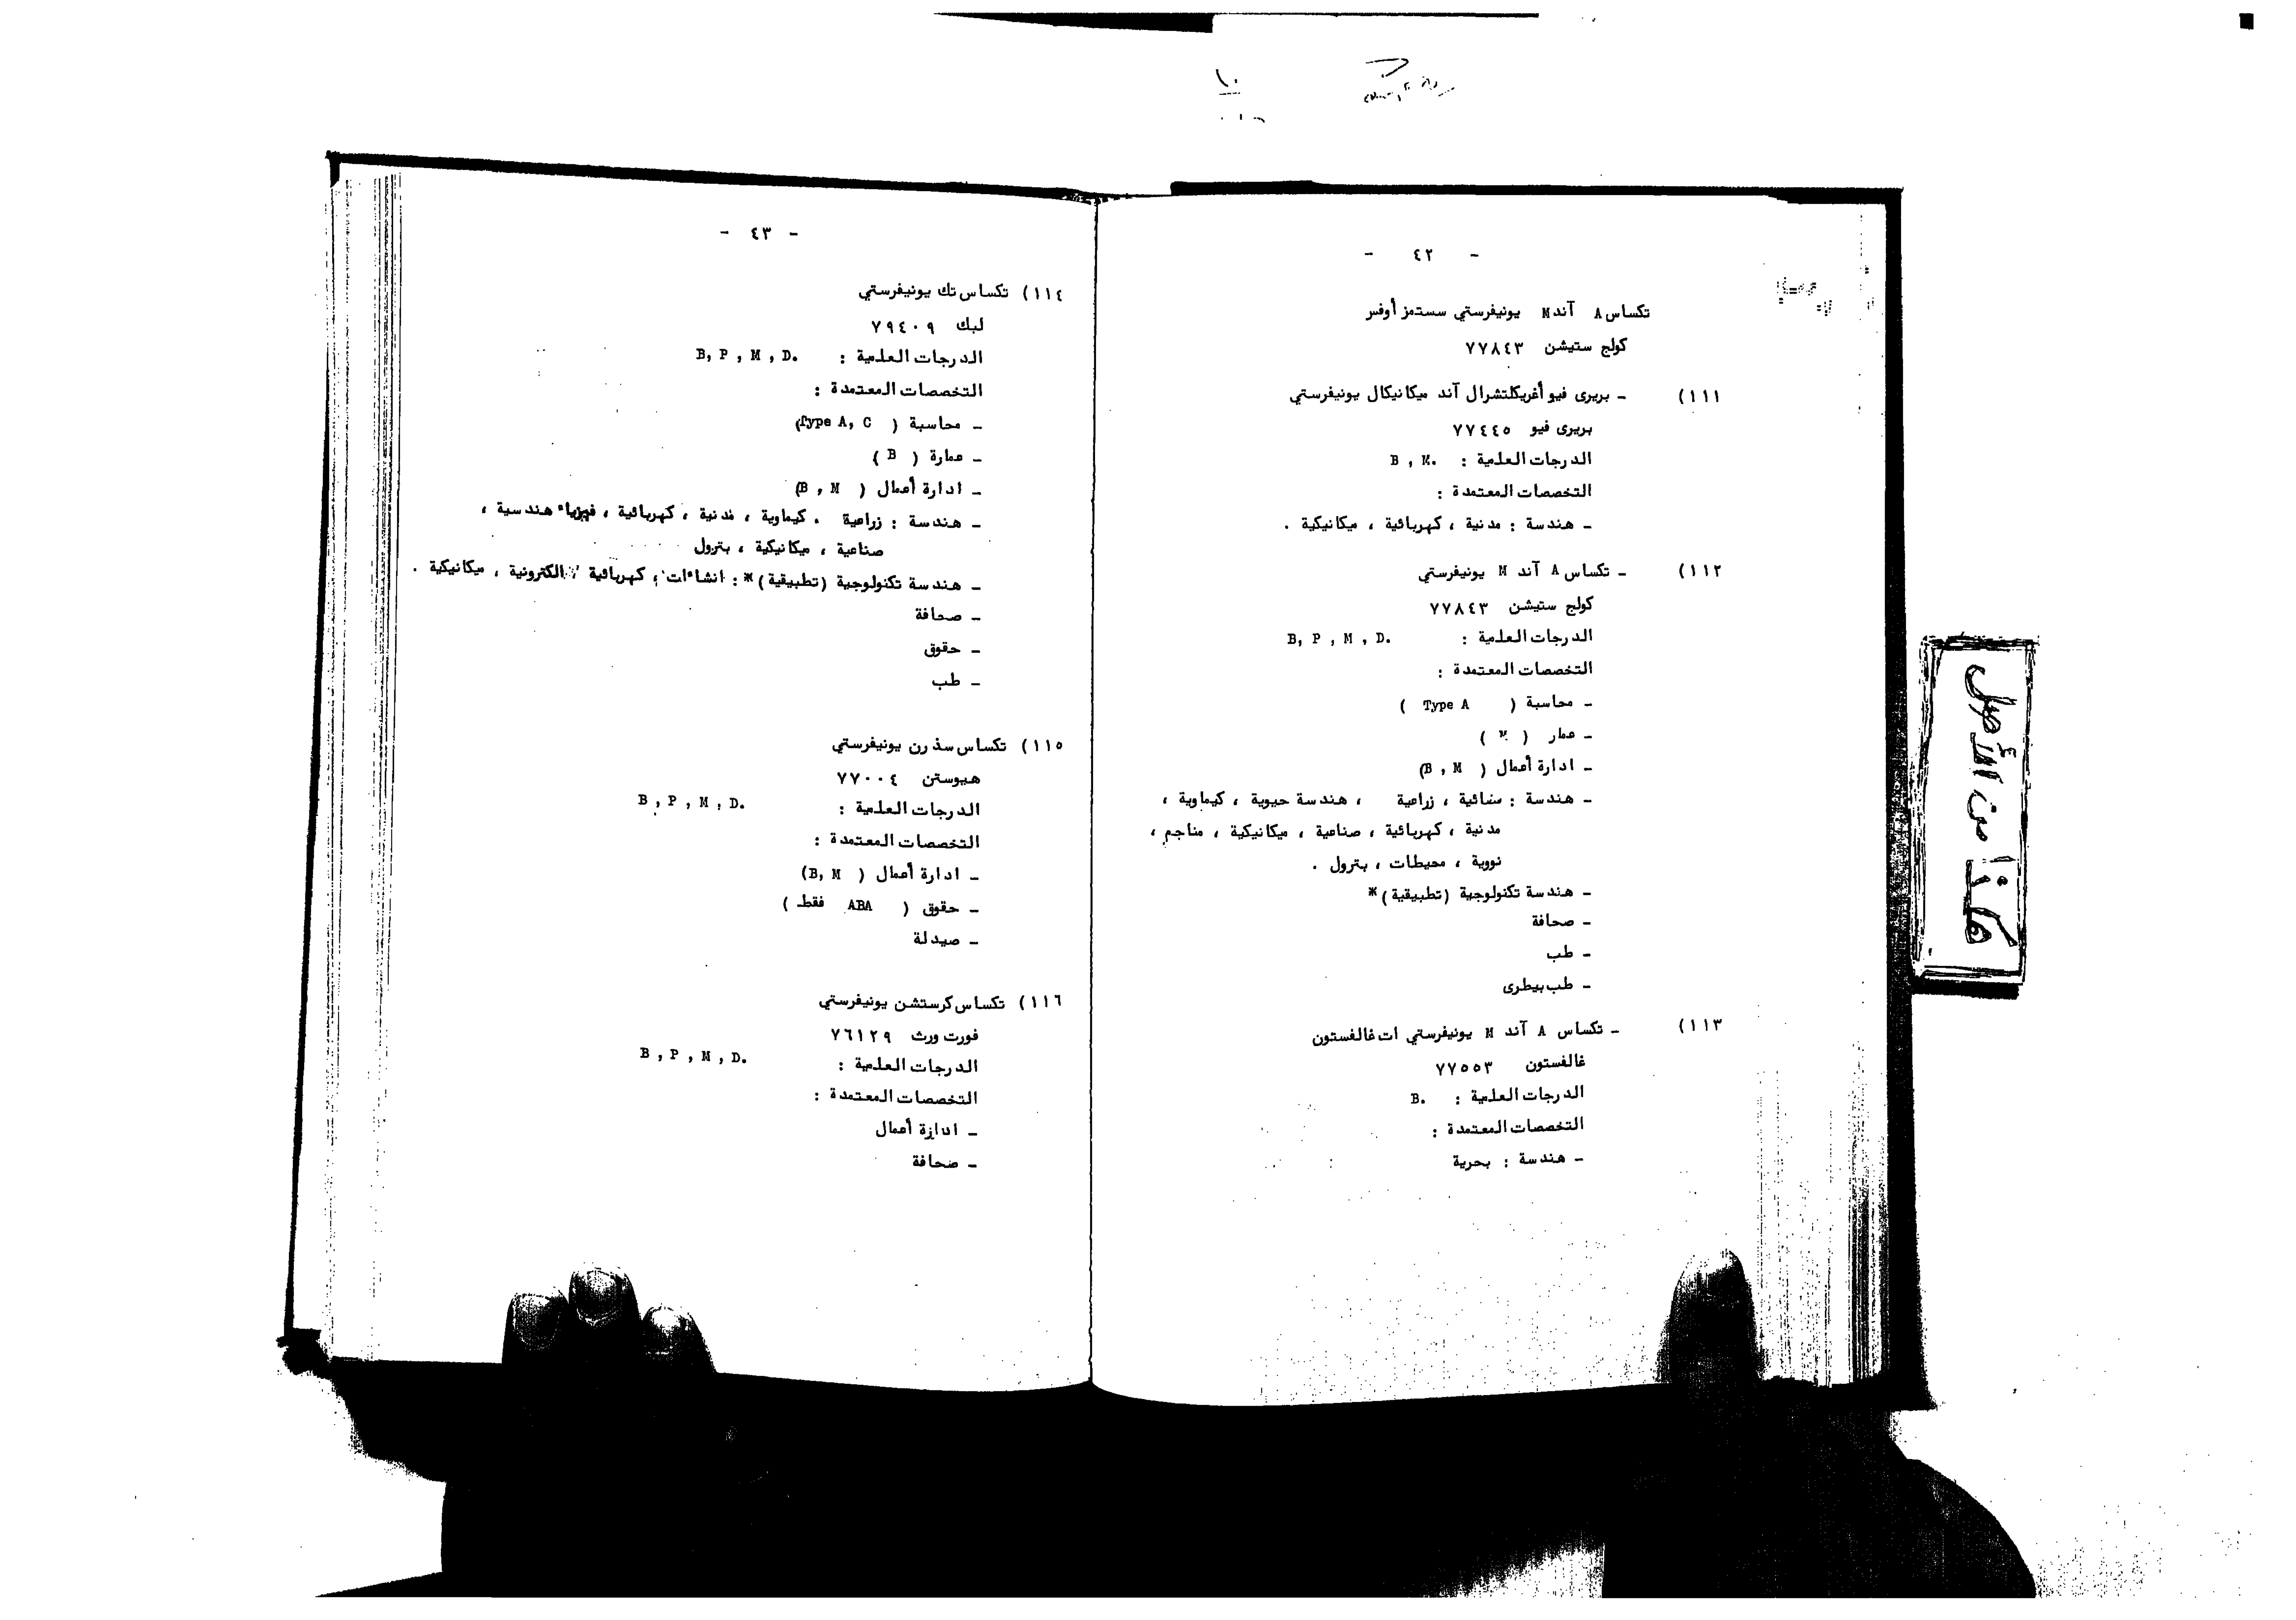 - ٤٢ -
تكساس A آند M يونيفرستي سستمز أوفس
كولج ستيشن ٧٧٨٤٣
(١١١ - بريرى فيو أغريكلتشرال آند ميكانيكال يونيفرستي
بريرى فيو ٧٧٤٤٥
الدرجات العلمية : B , M.
التخصصات المعتمدة :
- هندسة : مدنية ، كهربائية ، ميكانيكية .
(١١٢ - تكساس A آند M يونيفرستي
كولج ستيشن ٧٧٨٤٣
الدرجات العلمية : B, P , M , D.
التخصصات المعتمدة :
- محاسبة ( Type A )
- عمار ( M )
- ادارة أعمال ( B , M)
- هندسة : فضائية ، زراعية ، هندسة حيوية ، كيماوية ،
مدنية ، كهربائية ، صناعية ، ميكانيكية ، مناجم ،
نووية ، محيطات ، بترول .
- هندسة تكنولوجية (تطبيقية) *
- صحافة
- طب
- طب بيطرى
(١١٣ - تكساس A آند M يونيفرستي ات غالفستون
غالفستون ٧٧٥٥٣
الدرجات العلمية : B.
التخصصات المعتمدة :
- هندسة : بحرية
هكذا من الأصل
- ٤٣ -
(١١٤ تكساس تك يونيفرستي
لبك ٧٩٤٠٩
الدرجات العلمية : B, P , M , D.
التخصصات المعتمدة :
- محاسبة ( Type A, C)
- عمارة ( B )
- ادارة أعمال ( B , M)
- هندسة : زراعية . كيماوية ، مدنية ، كهربائية ، فيزياء هندسية ،
صناعية ، ميكانيكية ، بترول
- هندسة تكنولوجية (تطبيقية) * : انشاءات ، كهربائية / الكترونية ، ميكانيكية .
- صحافة
- حقوق
- طب
(١١٥ تكساس سذرن يونيفرستي
هيوستن ٧٧٠٠٤
الدرجات العلمية : B , P , M , D.
التخصصات المعتمدة :
- ادارة أعمال ( B, M)
- حقوق ( ABA فقط )
- صيدلة
(١١٦ تكساس كرستشن يونيفرستي
فورت ورث ٧٦١٢٩
الدرجات العلمية : B , P , M , D.
التخصصات المعتمدة :
- ادارة أعمال
- صحافة